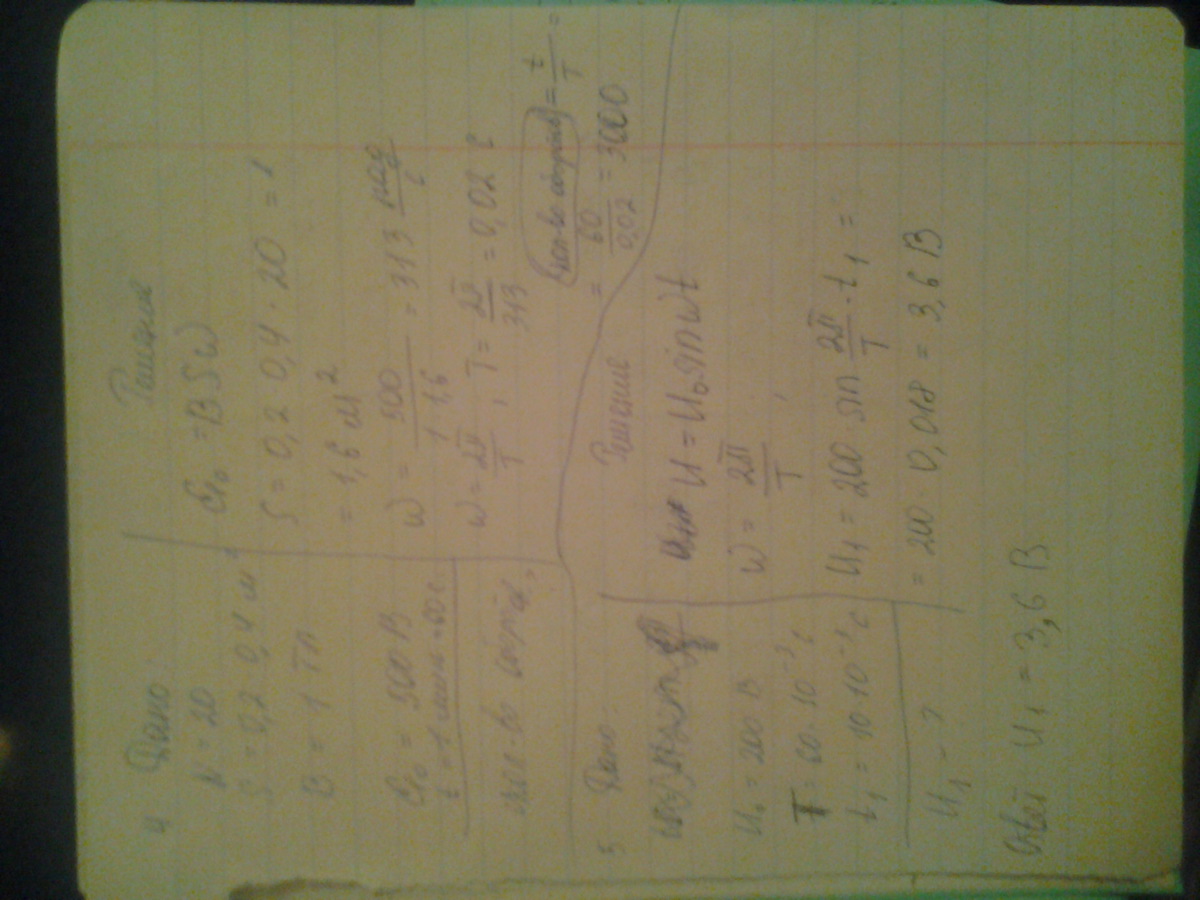 4 Дано:
N = 20
S = 0,2 · 0,4 м²
B = 1 Тл
ℰ₀ = 500 В
t = 1 мин = 60 с
кол-во оборотов ?
Решение
ℰ₀ = BSω
S = 0,2 · 0,4 · 20 =
= 1,6 м²
ω = 500 / 1 · 1,6 = 313 рад/с
ω = 2π/T ; T = 2π/313 = 0,02 с
(кол-во оборотов) = t/T =
= 60/0,02 = 3000
5 Дано
U₀ = 200 В
T = 60 · 10⁻³ с
t₁ = 10 · 10⁻³ с
U₁ - ?
Решение
U = U₀ sin ωt
ω = 2π/T ;
U₁ = 200 sin 2π/T · t₁ =
= 200 · 0,018 = 3,6 В
Ответ: U₁ = 3,6 В